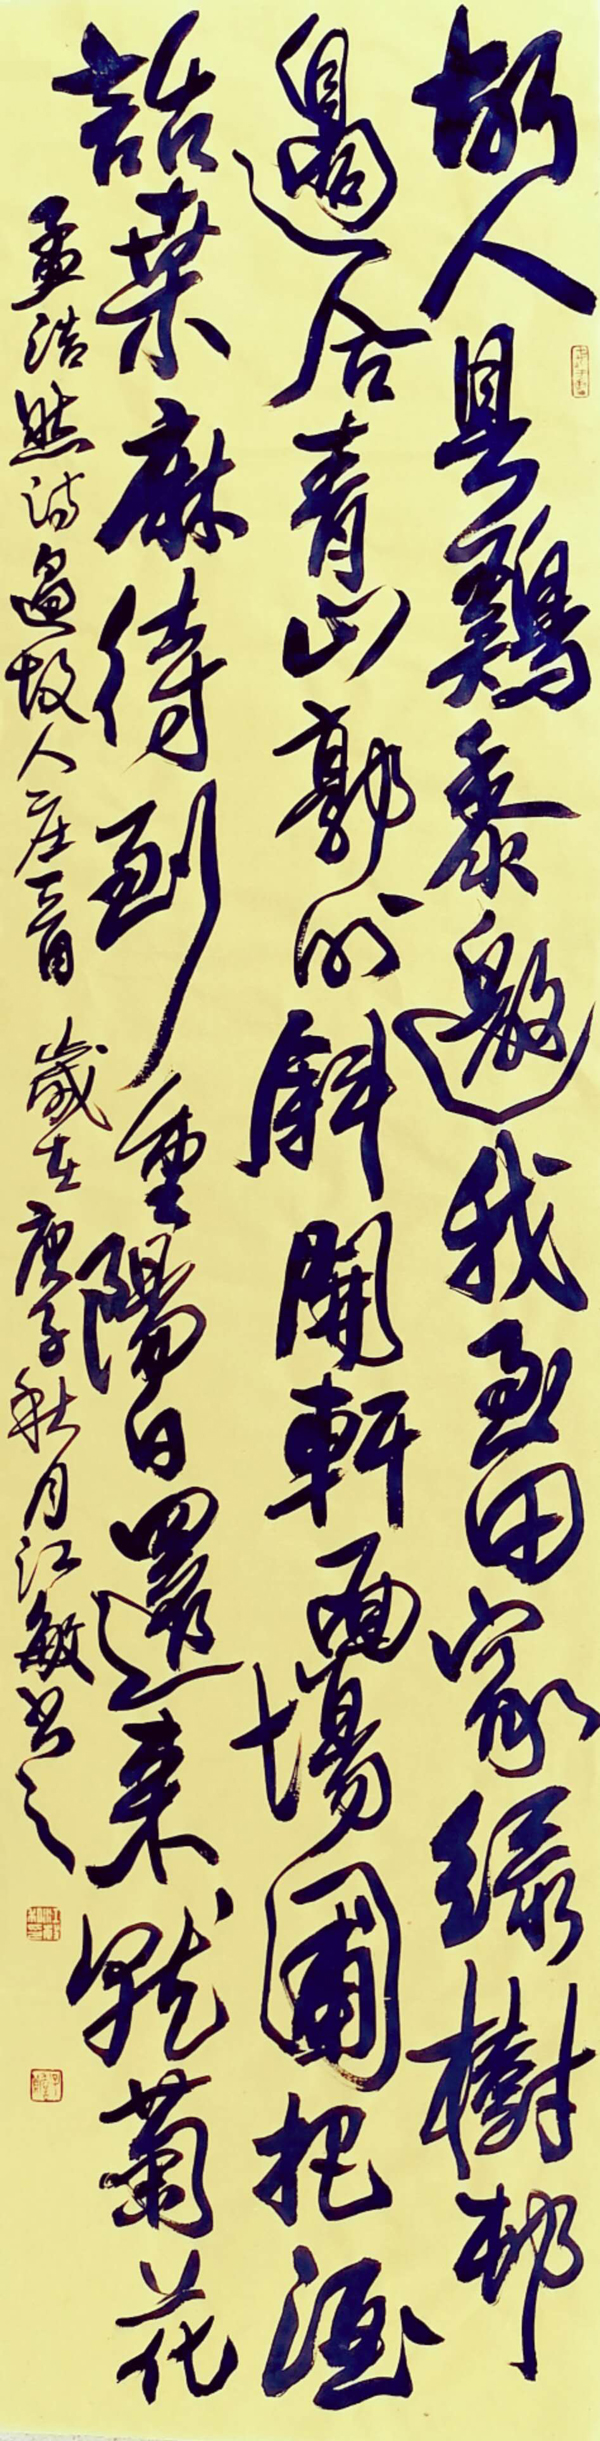 故人具鷄黍邀我至田家綠樹邨
邊合青山郭外斜開軒面場圃把酒
話桑麻待到重陽日還来就菊花
孟浩然詩過故人庄一首 歲在庚子秋月江敏书之